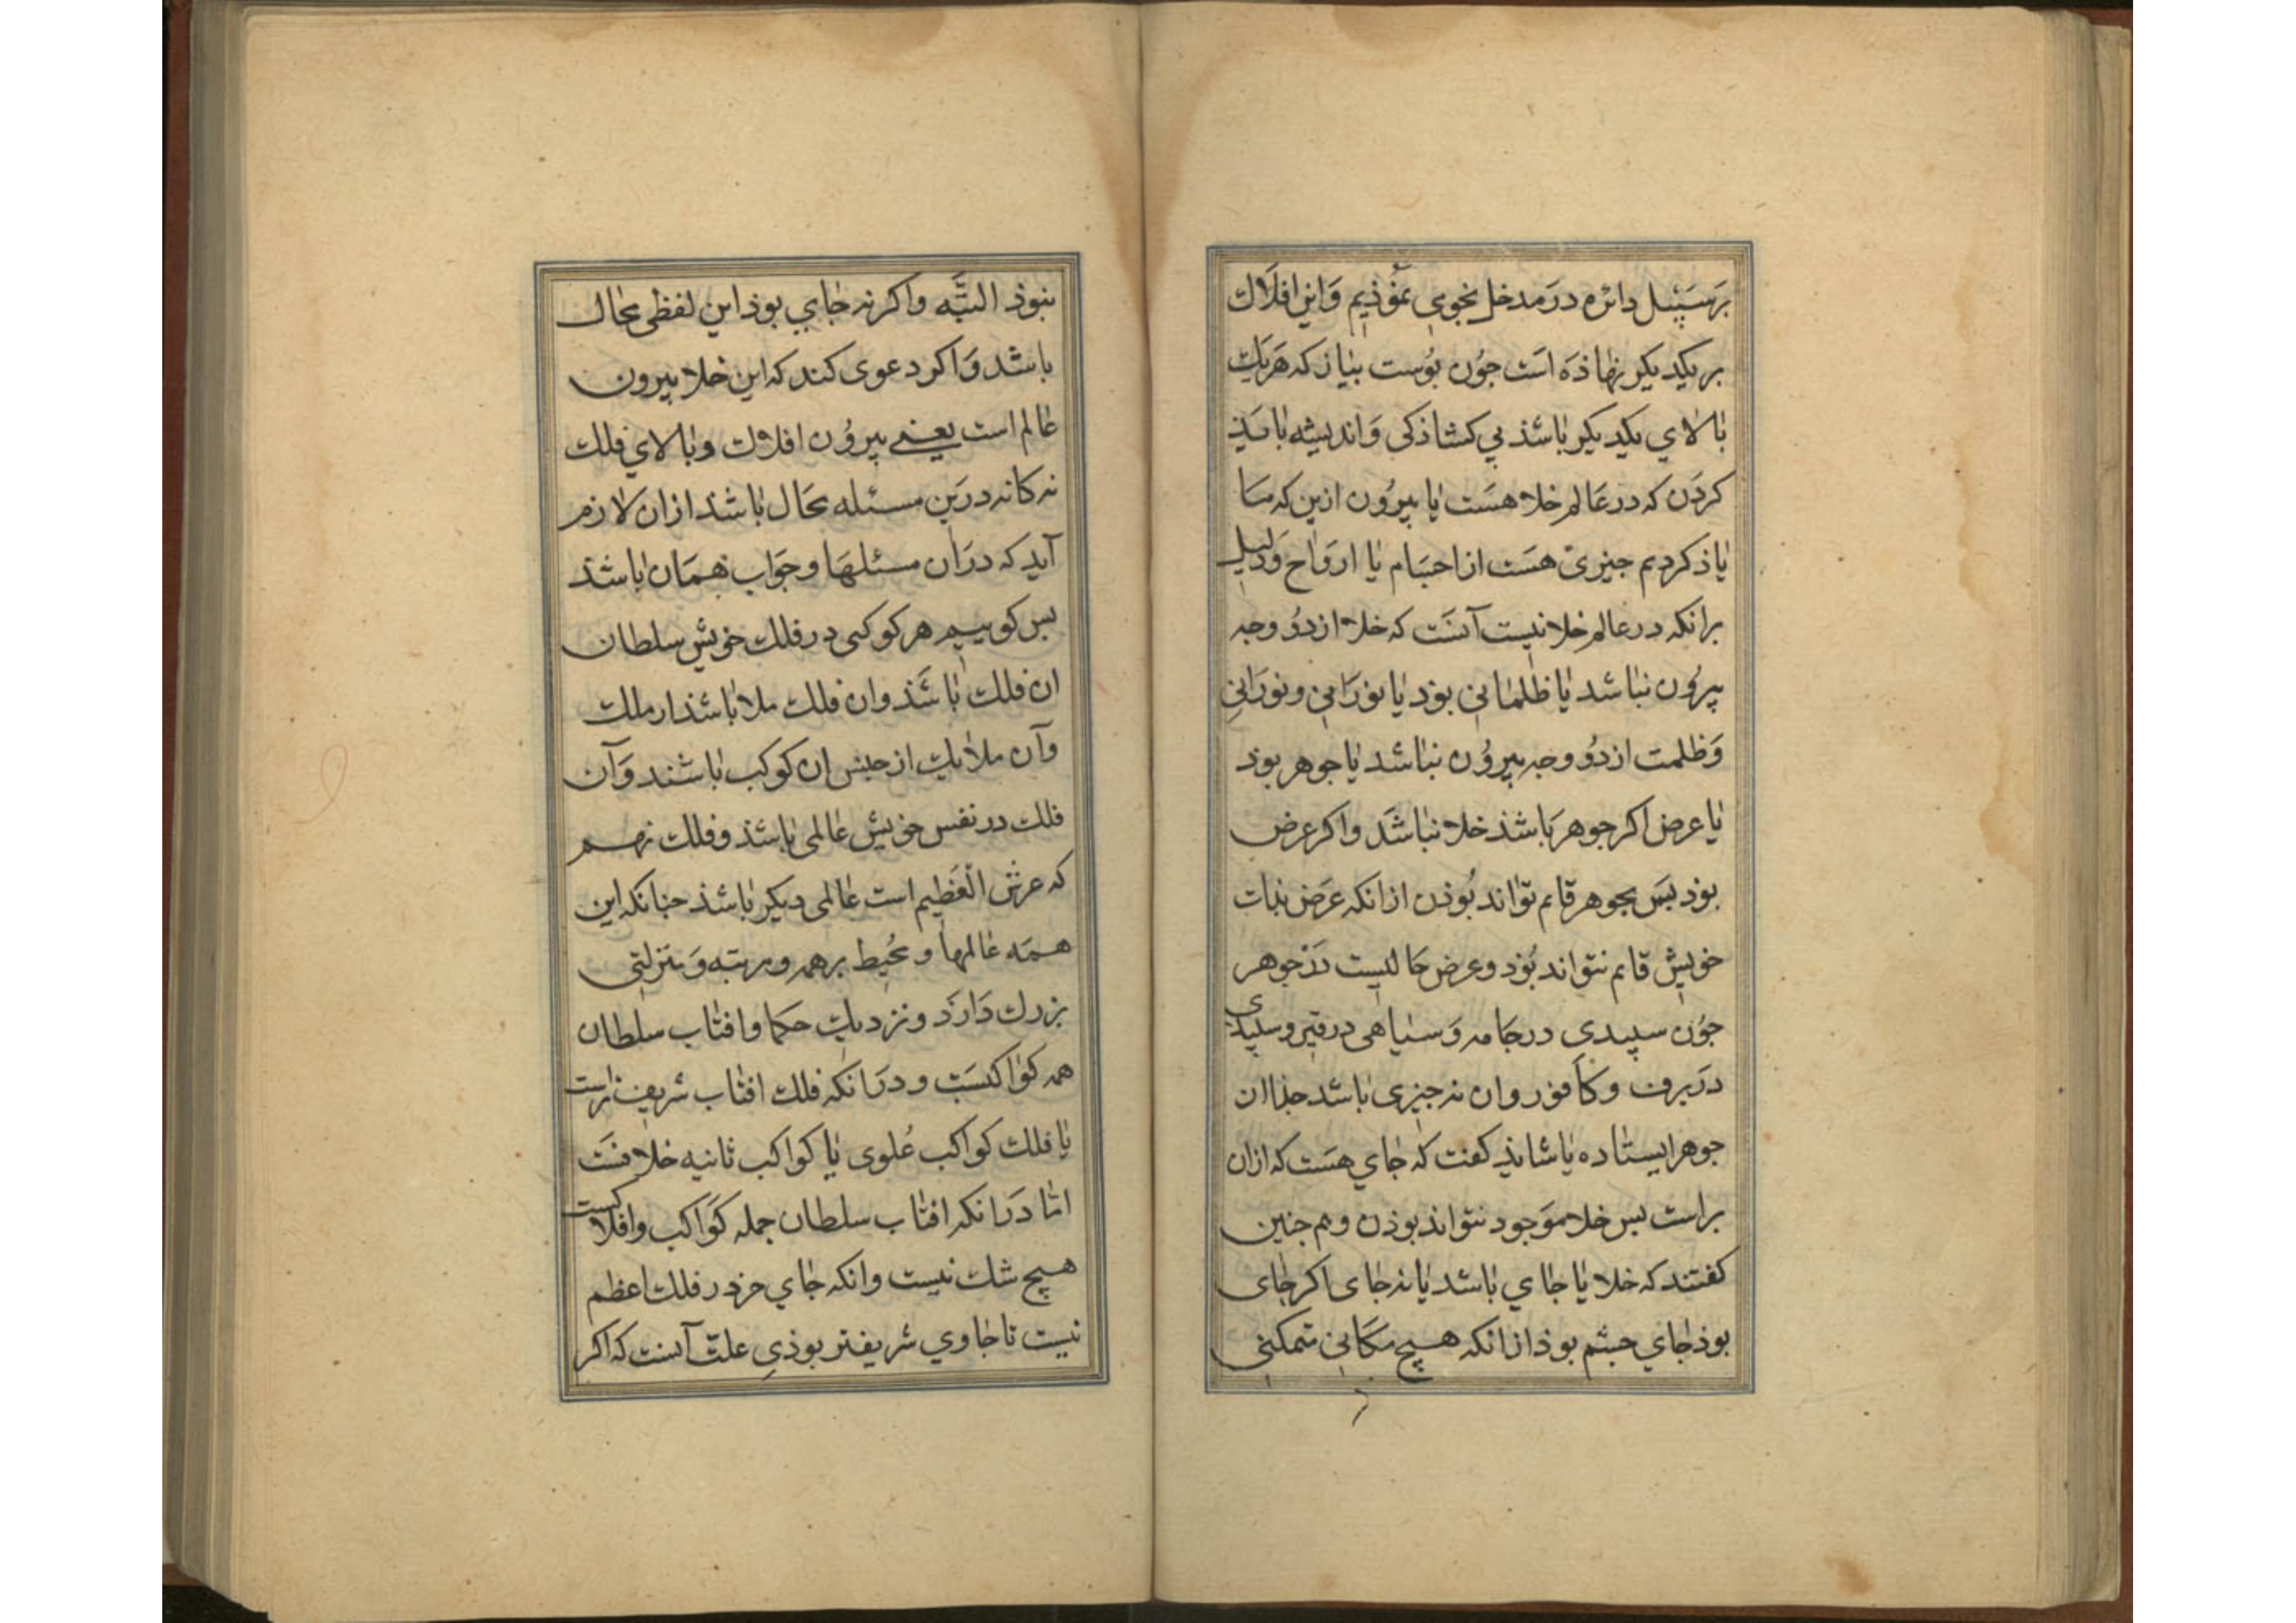 برسبیل دائره در مدخل نجومی بنموذیم واین افلاک
بر یکدیکر نهاذه است جون بوست بیاز که هر یک
بالای یکدیکر باشذ بی کشاذکی واندیشه بایذ
کردن که در عالم خلا هست یا بیرون ازین که ما
یاذ کردیم جیزی هست از اجسام یا ارواح ودلیل
برانکه در عالم خلا نیست آنست که خلا از دو وجه
بیرون نباشد یا ظلمانی بوذ یا نورانی ونورانی
وظلمت از دو وجه بیرون نباشد یا جوهر بوذ
یا عرض اکر جوهر باشذ خلا نباشد واکر عرض
بوذ بس بجوهر قایم تواند بوذن ازانکه عرض بذات
خویش قایم نتواند بوذ وعرض حالیست در جوهر
جون سپیدی در جامه وسیاهی در قیر وسپیدی
در برف وکافور وان نه جیزی باشد جذا ان
جوهر ایستاده یا شایذ کفت که جای هست که ازان
براست بس خلا موجود نتواند بوذن وهم جنین
کفتند که خلا یا جای باشد یا نه جای اکر جای
بوذ جای جسم بوذ ازانکه هیچ مکانی متمکنی
نبوذ البته واکر نه جای بوذ این لفظی محال
باشد واکر دعوی کند که این خلا بیرون
عالم است یعنی بیرون افلاک وبالای فلک
نه کانه درین مسئله محال باشذ ازان لازم
آید که دران مسئلها وجواب همان باشذ
بس کوییم هر کوکبی در فلک خویش سلطان
ان فلک باشذ وان فلک ملا باشذ از ملک
وآن ملایک از جنس ان کوکب باشند وآن
فلک در نفس خویش عالمی باشذ وفلک نهم
که عرش العظیم است عالمی دیکر باشذ جنانکه این
همه عالمها ومحیط بر همه ومرتبه ومنزلتی
بزرک دارذ ونزدیک حکما وافتاب سلطان
همه کواکبست ودرانکه فلک افتاب شریفتراست
یا فلک کواکب علوی یا کواکب ثانیه خلافست
اما درانکه افتاب سلطان جمله کواکب وافلاکست
هیچ شک نیست وانکه جای خرذ در فلک اعظم
نیست تا جاوی شریفتر بوذی علت آنست که اکر